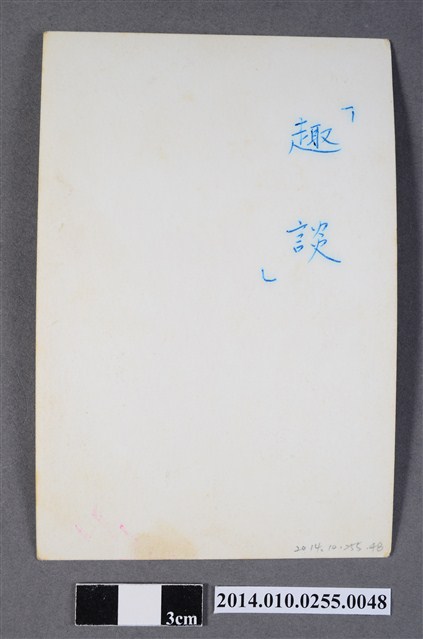 「趣談」
2014.10.255.48
3cm
2014.010.0255.0048